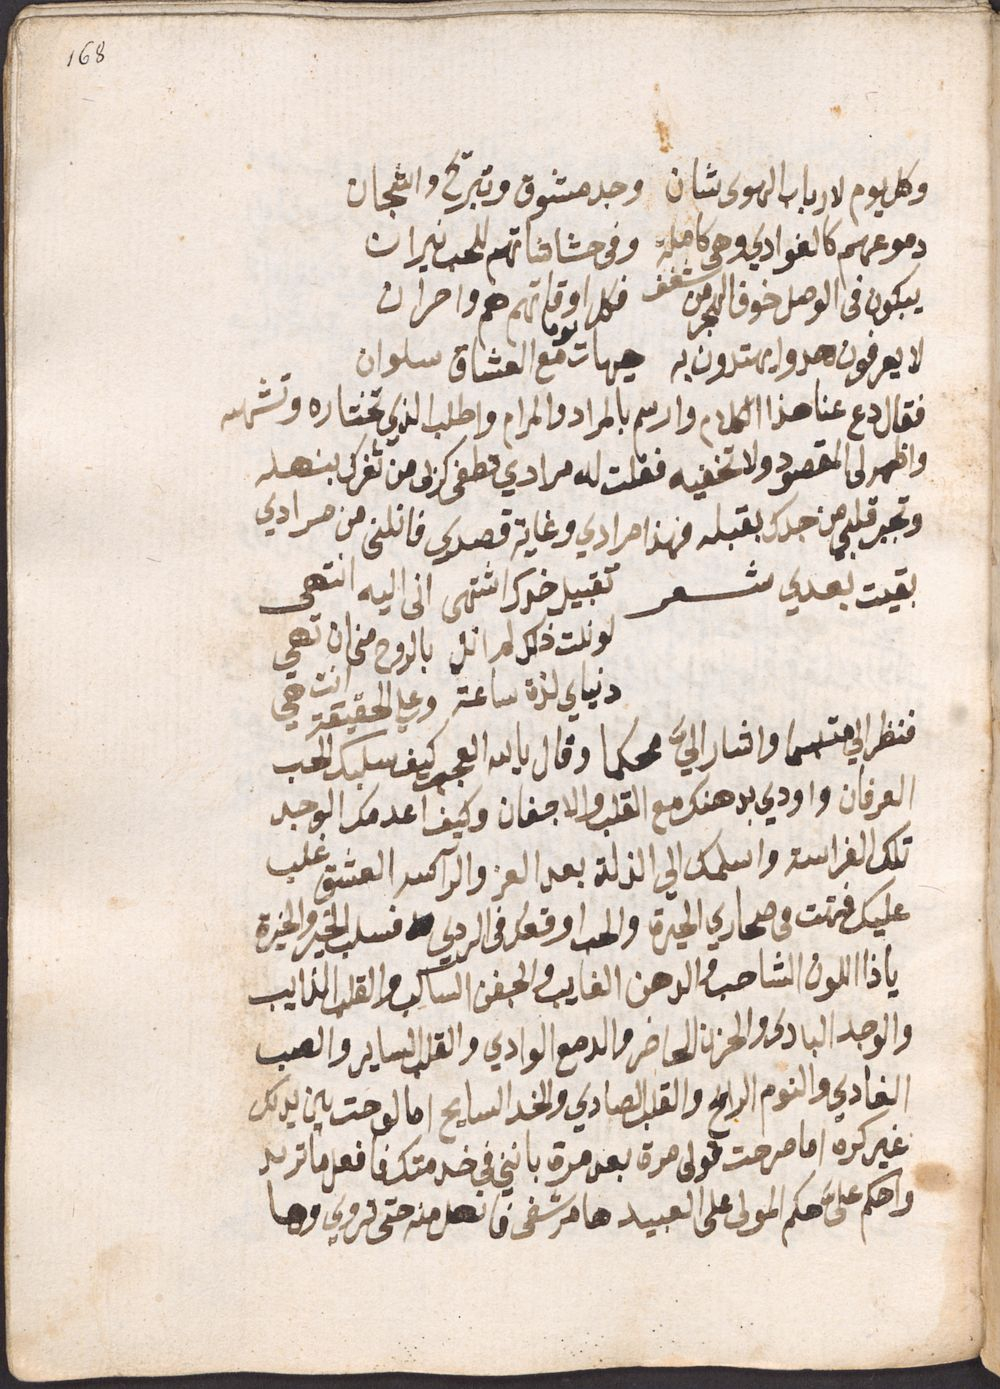 168
وكل يوم لارباب الهوى شان وجد مشوق وتبريح واشجان
دموعهم كالغوادي وهي كاملة وفي حشاشاتهم للحب نيران
يبكون في الوصل خوف الهجر من شغف فكل اوقاتهم هم واحزان
لا يعرفون هدوا يهتدون به هيهات يوما مع العشاق سلوان
فقال دع عنا هذا الكلام وارسم بالمراد والمرام واطلب الذي تختاره وتشتهيه
واظهر لي المقصود ولا تخفيه فقلت له مرادي تطفي كربي من ثغرك بنهله
وتجبر قلبي من خدك بقبله فهذا مرادي وغاية قصدي فانلني من مرادي
بقيت بعدي شعر تقبيل خدك اشتهى اني اليه انتهى
لو نلت ذلك لم ابل بالروح مني ان تهي
دنياي لذة ساعة وعلي الحقيقة انت هي
فنظر الي متبسما واشار الي محكما وقال يالله العجب كيف سلبك الحب
العرفان واودي بذهنك مع القلب والاجفان وكيف اعدمك الوجد
تلك الفراسة واسلمك الي الذلة بعد العز والرآسه العشق غلب
عليك فهمت في صحاري الحيرة والحب اوقعك في الردي فسلب الخير والخيرة
ياذا اللون الشاحب والذهن الغايب والجفن الساكب والقلب الذايب
والوجد البادي والحزن الحاضر والدمع الوادي والقلب الساير والصب
الغادي والنوم الرايح والقلب الصادي والخد السايح اما لوحت بين يديك
غير كره اما صرحت قولي مرة بعد مرة بانني في خدمتك فافعل ما تريد
واحكم علىّ حكم المولى على العبيد ها مرشفى فانهل منه حتى تروي وها